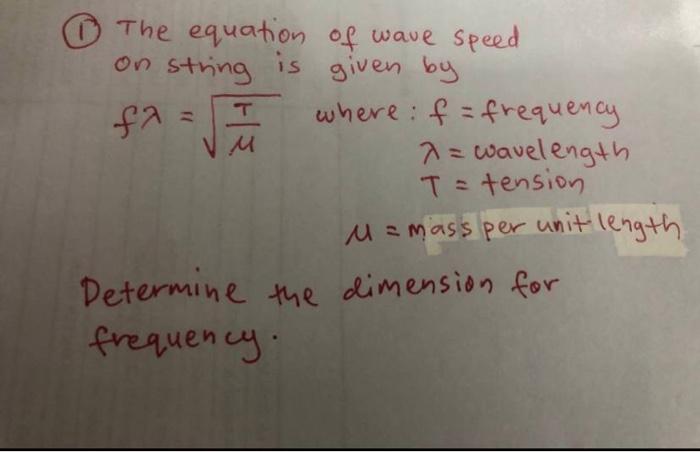 ① The equation of wave speed
on string is given by
fλ = √(T/μ) where : f = frequency
λ = wavelength
T = tension
μ = mass per unit length
Determine the dimension for
frequency.